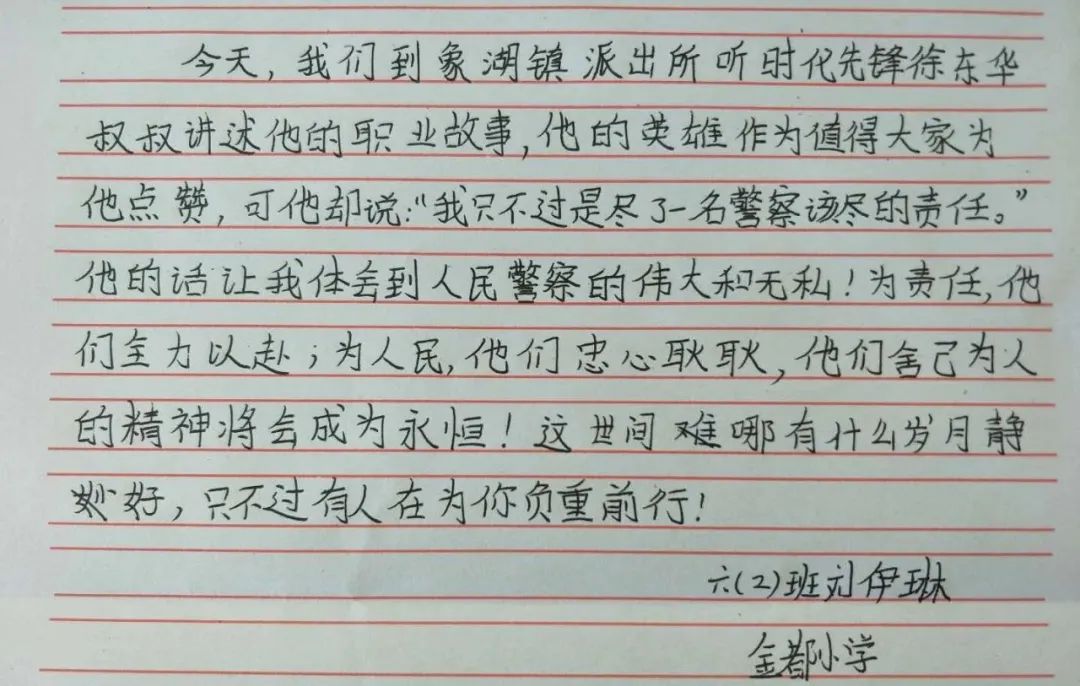 今天，我们到象湖镇派出所听时代先锋徐东华
叔叔讲述他的职业故事，他的英雄作为值得大家为
他点赞，可他却说：“我只不过是尽了一名警察该尽的责任。”
他的话让我体会到人民警察的伟大和无私！为责任，他
们全力以赴；为人民，他们忠心耿耿，他们舍己为人
的精神将会成为永恒！这世间难哪有什么岁月静
妙好，只不过有人在为你负重前行！
六（2）班刘伊琳
金都小学